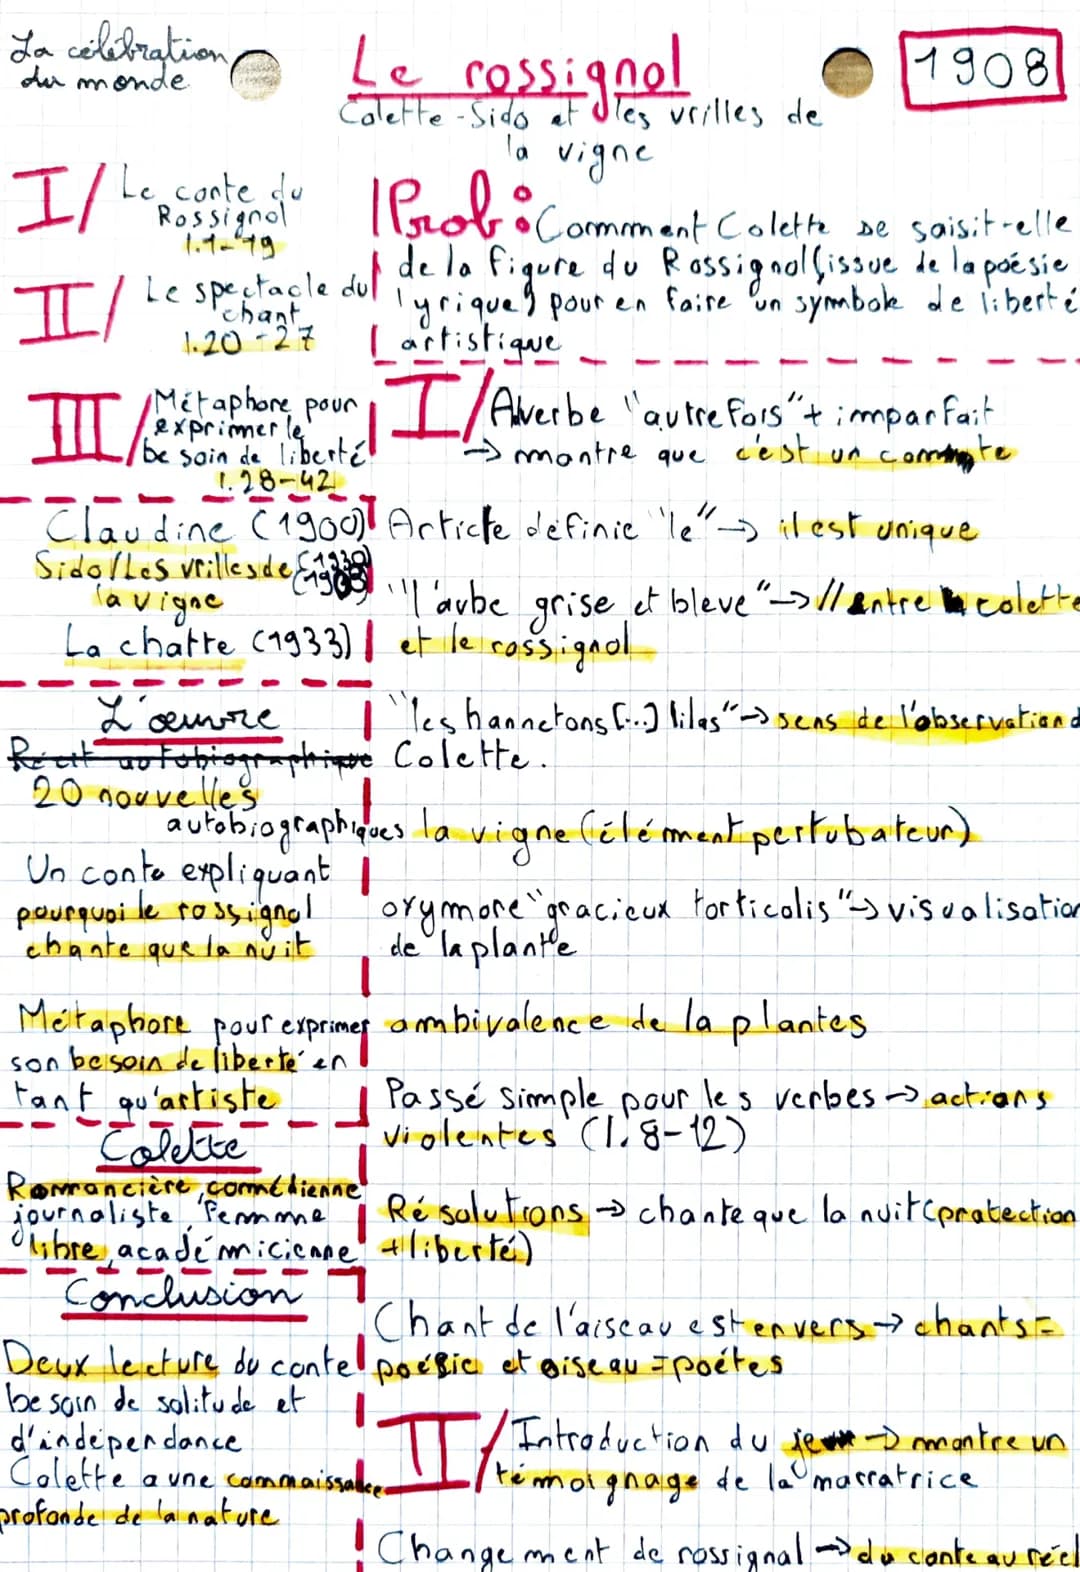 La célébration
du monde
Le rossignol
1908
Colette - Sido et les vrilles de
la vigne
I/ Le conte du
Rossignol
l.1-19
II/ Le spectacle du
chant
l.20-27
III/ Métaphore pour
exprimer le
besoin de liberté
l.28-42
Claudine (1900)
Sido/Les vrilles de (1930)
la vigne (1908)
La chatte (1933)
L'œuvre
Récit autobiographique
20 nouvelles
autobiographiques
Un conte expliquant
pourquoi le rossignol
chante que la nuit
Métaphore pour exprimer
son besoin de liberté en
tant qu'artiste
Colette
Romancière, comédienne
journaliste, femme
libre, académicienne
Conclusion
Deux lecture du conte
besoin de solitude et
d'indépendance
Colette a une connaissance
profonde de la nature
Prob: Comment Colette se saisit-elle
de la figure du Rossignol (issue de la poésie
lyrique) pour en faire un symbole de liberté
artistique
I/ Adverbe "autrefois" + imparfait
→ montre que c'est un conte
Article définie "le" → il est unique
"l'aube grise et bleue" → // entre colette
et le rossignol
"les hannetons [...] lilas" → sens de l'observation d
Colette.
la vigne (élément pertubateur)
oxymore "gracieux torticolis" → visualisation
de la plante
ambivalence de la plantes
Passé simple pour les verbes → actions
violentes (l. 8-12)
Résolutions → chante que la nuit (protection
+ liberté)
Chant de l'oiseau est en vers → chants =
poésie et oiseau = poètes
II/ Introduction du je → montre un
témoignage de la narratrice
Changement de rossignol → du conte au réel